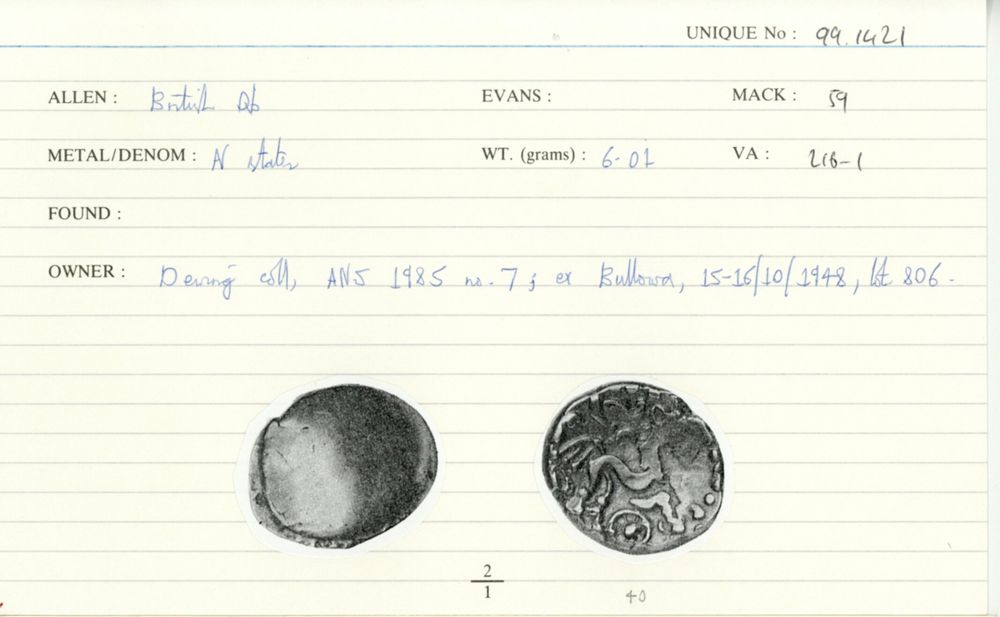 UNIQUE No : 99.1421
ALLEN : British Qb EVANS : MACK : 59
METAL/DENOM : N stater WT. (grams) : 6.01 VA : 216-1
FOUND :
OWNER : Dewing coll, ANS 1985 no. 7; ex Bullowa, 15-16/10/1948, lot 806.
2
1
40